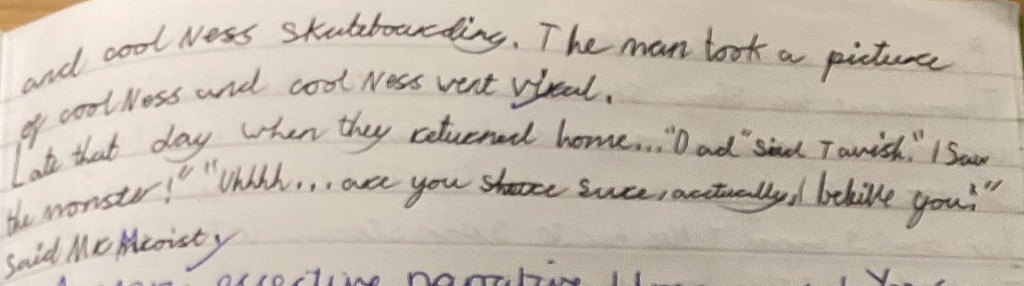 and cool Ness skateboarding. The man took a picture
of cool Ness and cool Ness went viral.
Late that day when they returned home..."Dad" said Tavish." I Saw
the monster!" "Uhhhh... are you sure, acctually, I belive you!"
said Mr
narrative